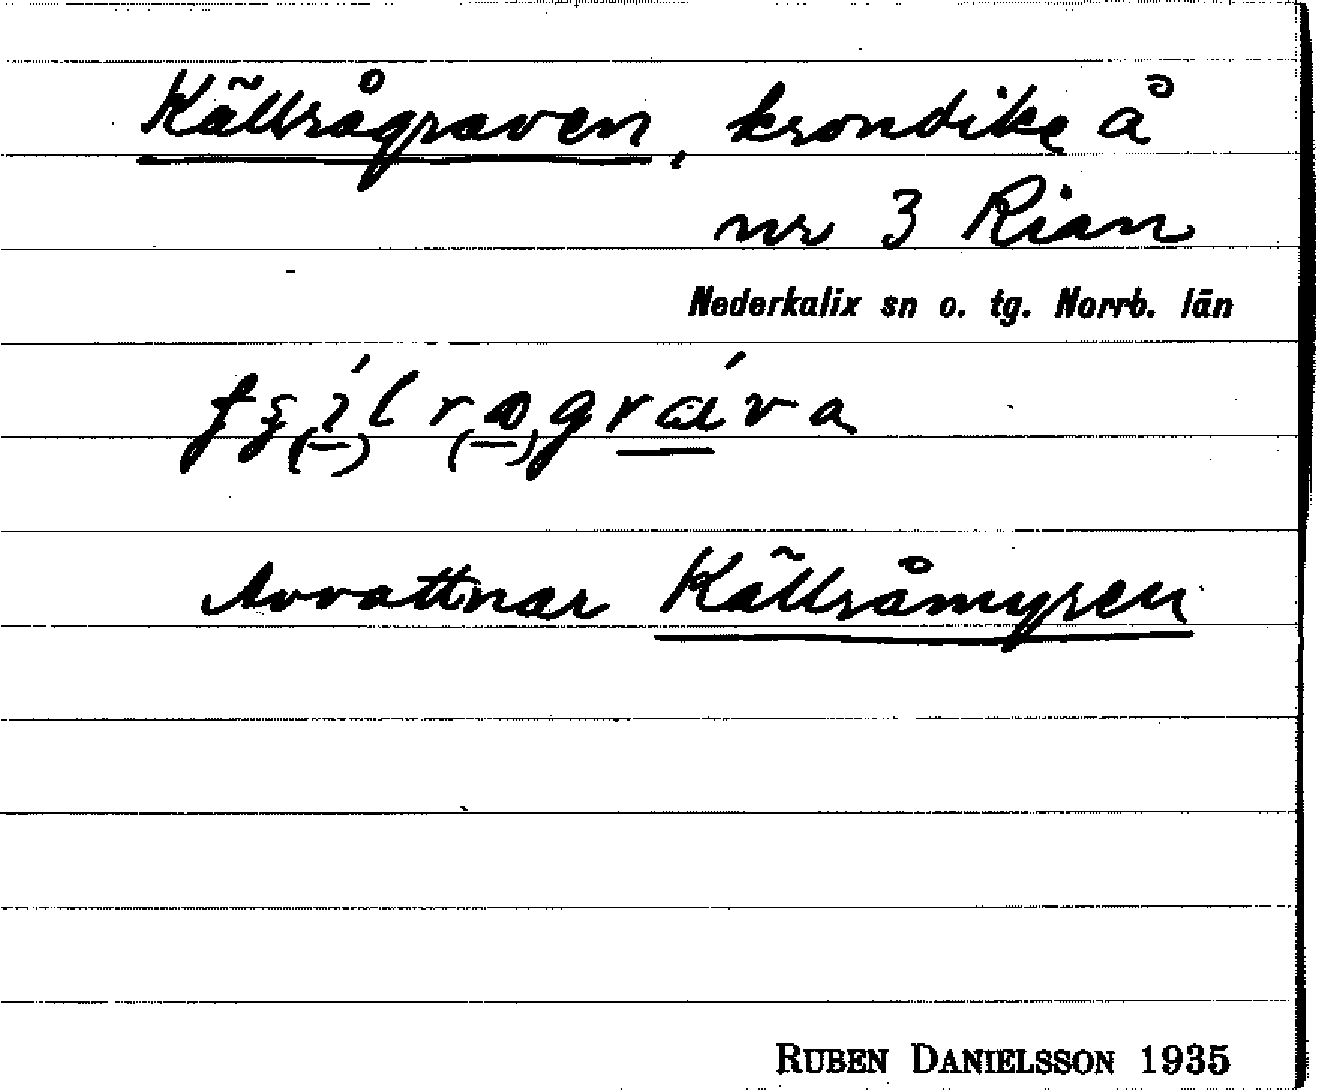 Källrågraven, krondike å
nr 3 Rian
Nederkalix sn o. tg. Norrb. län
Avvattnar Källråmyren
RUBEN DANIELSSON 1935